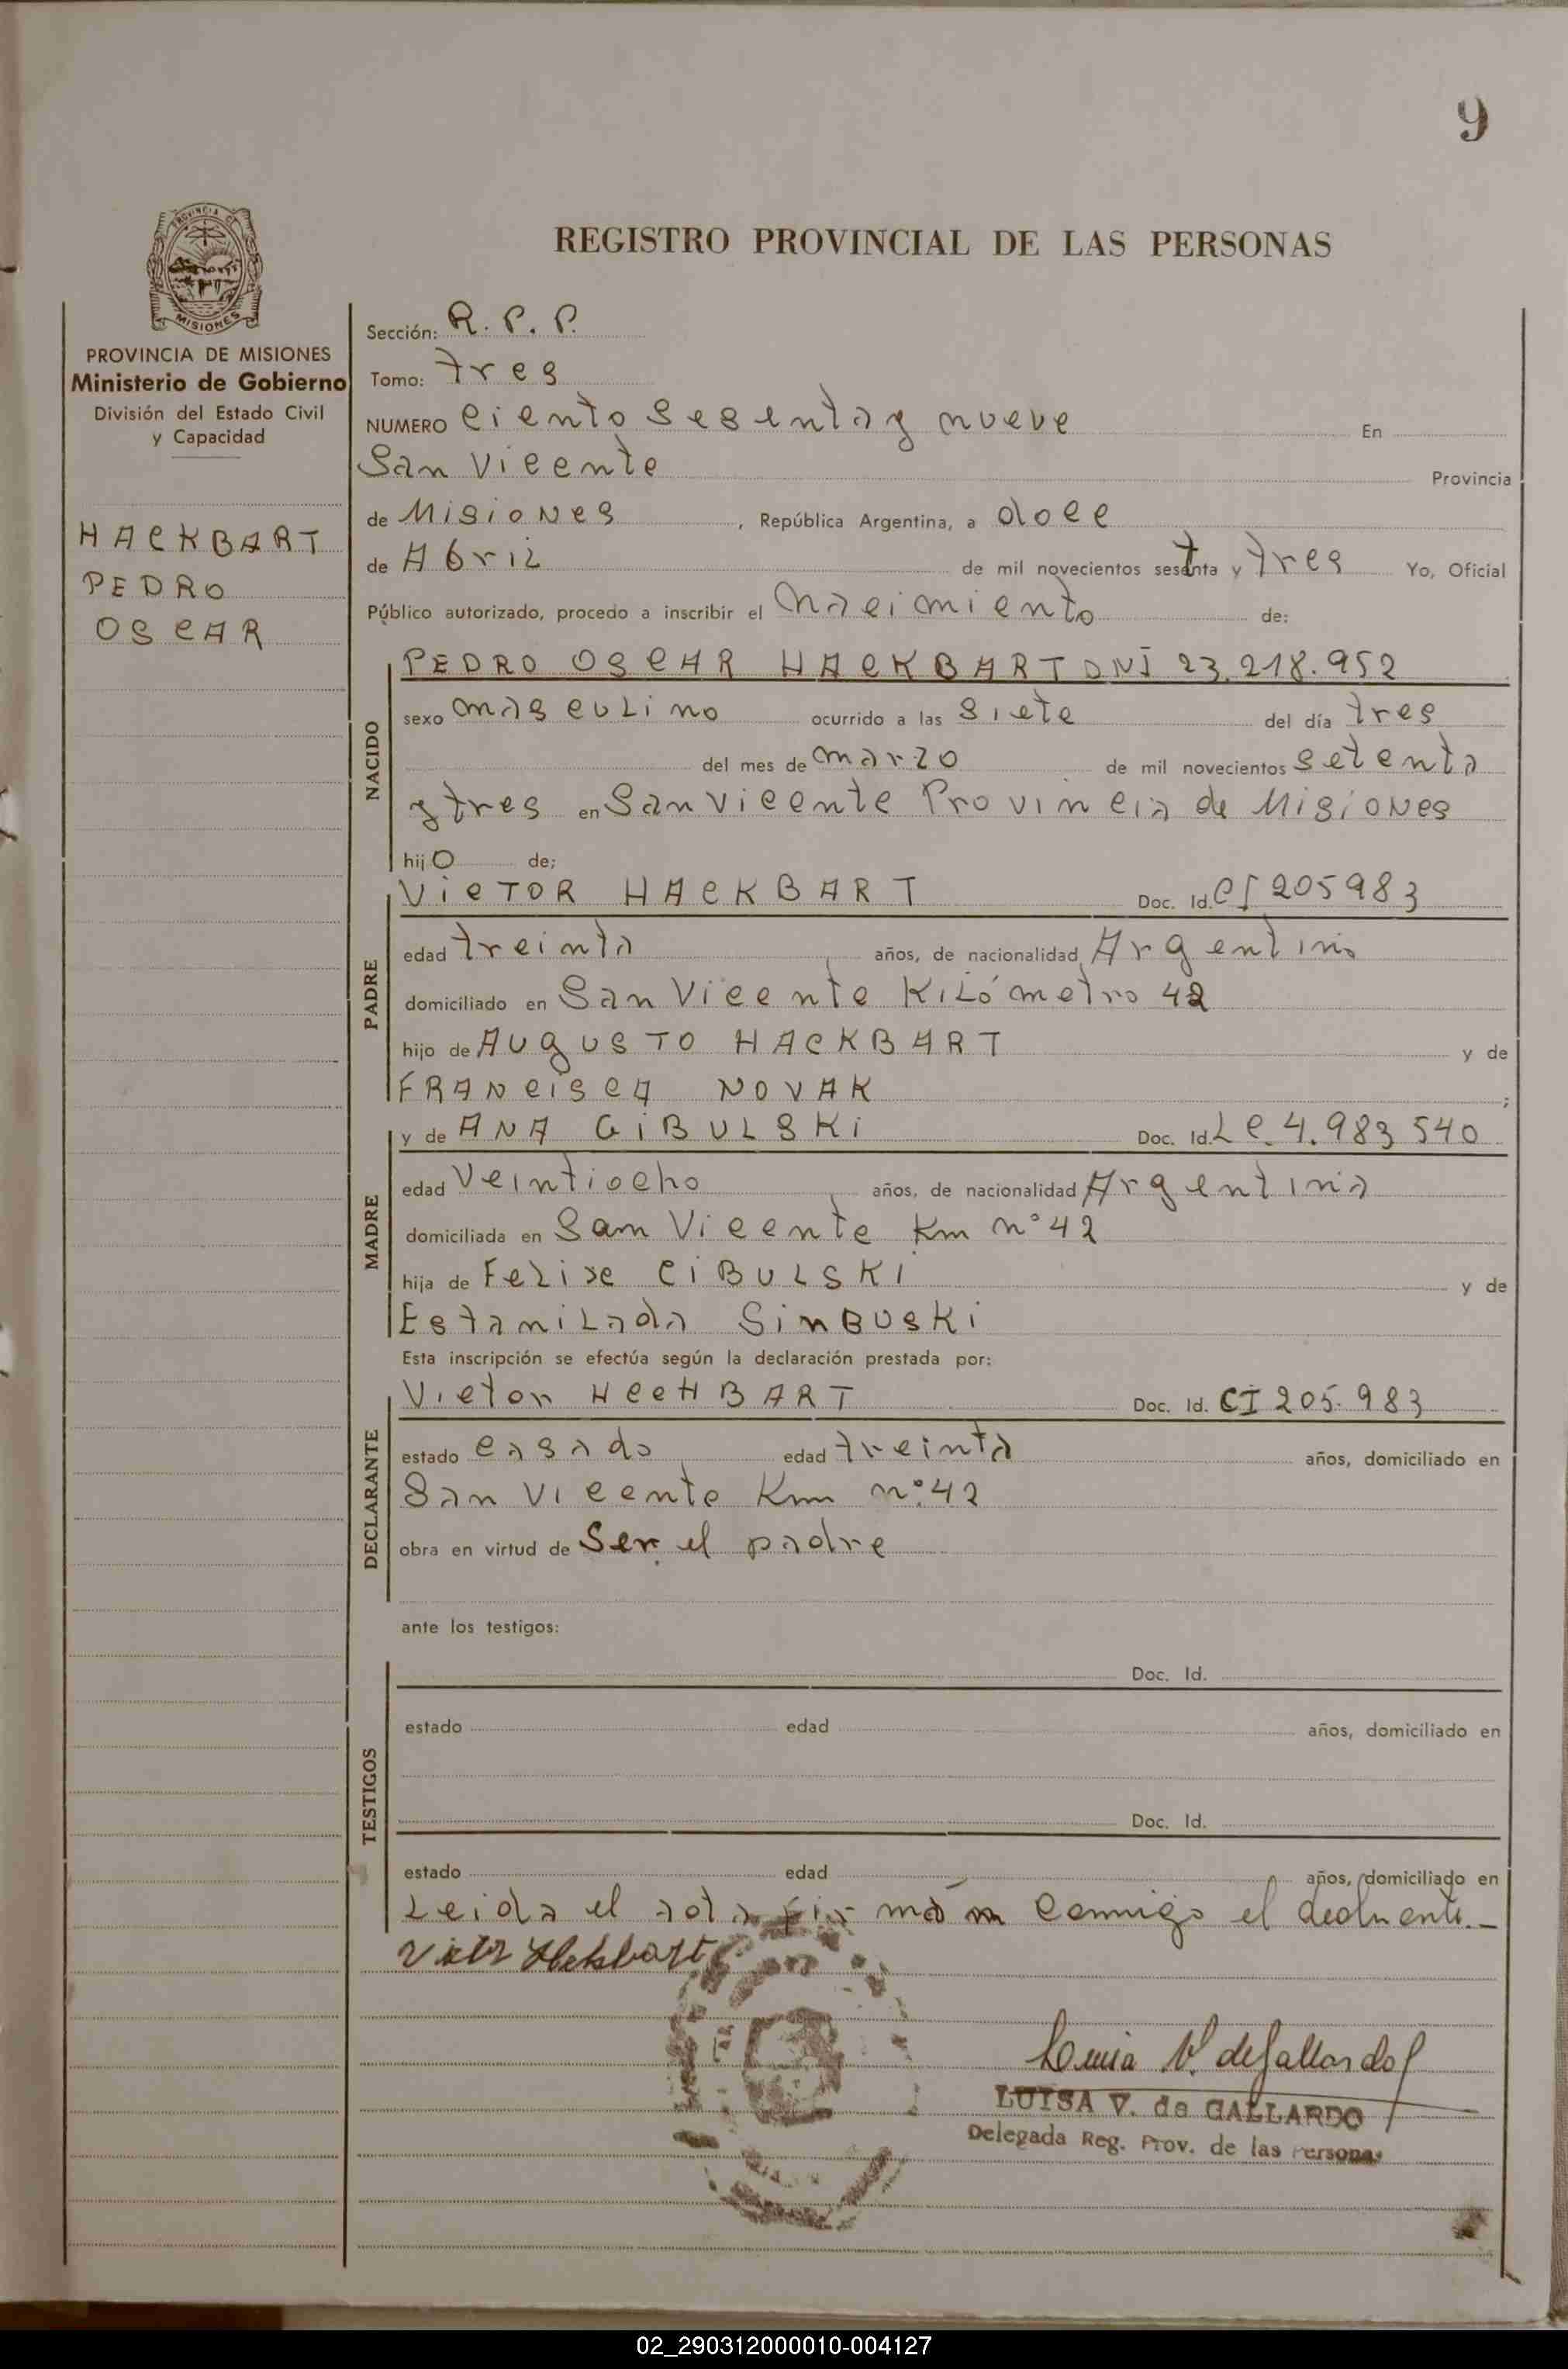 9
PROVINCIA DE
MISIONES
REGISTRO PROVINCIAL DE LAS PERSONAS
PROVINCIA DE MISIONES
Ministerio de Gobierno
División del Estado Civil
y Capacidad
HACKBART
PEDRO
OSCAR
Sección: R. P. P.
Tomo: tres
NUMERO ciento sesenta y nueve En
San Vicente Provincia
de Misiones, República Argentina, a doce
de Abril de mil novecientos setenta y tres Yo, Oficial
Público autorizado, procedo a inscribir el nacimiento de:
NACIDO
PEDRO OSCAR HACKBART DNI 23.218.952
sexo masculino ocurrido a las siete del día tres
del mes de marzo de mil novecientos setenta
y tres en San Vicente Provincia de Misiones
hijo de:
PADRE
VICTOR HACKBART Doc. Id. CI 205983
edad treinta años, de nacionalidad Argentino
domiciliado en San Vicente Kilómetro 42
hijo de AUgUSTO HACKBART y de
FRANCISCA NOVAK ;
MADRE
y de ANA CIBULSKI Doc. Id. LC. 4.983 540
edad Veintiocho años, de nacionalidad Argentina
domiciliada en San Vicente Km n° 42
hija de Felixe CIBULSKI y de
Estanilada SinBUSKi
Esta inscripción se efectúa según la declaración prestada por:
DECLARANTE
Victor HECHBART Doc. Id. CI 205.983
estado casado edad treinta años, domiciliado en
San Vicente Km n° 42
obra en virtud de Ser el padre
ante los testigos:
TESTIGOS
Doc. Id.
estado edad años, domiciliado en
Doc. Id.
estado edad años, domiciliado en
Leida el acta firmam conmigo el
Luisa V. de Gallardo
LUISA V. de GALLARDO
Delegada Reg. Prov. de las Personas
02_290312000010-004127